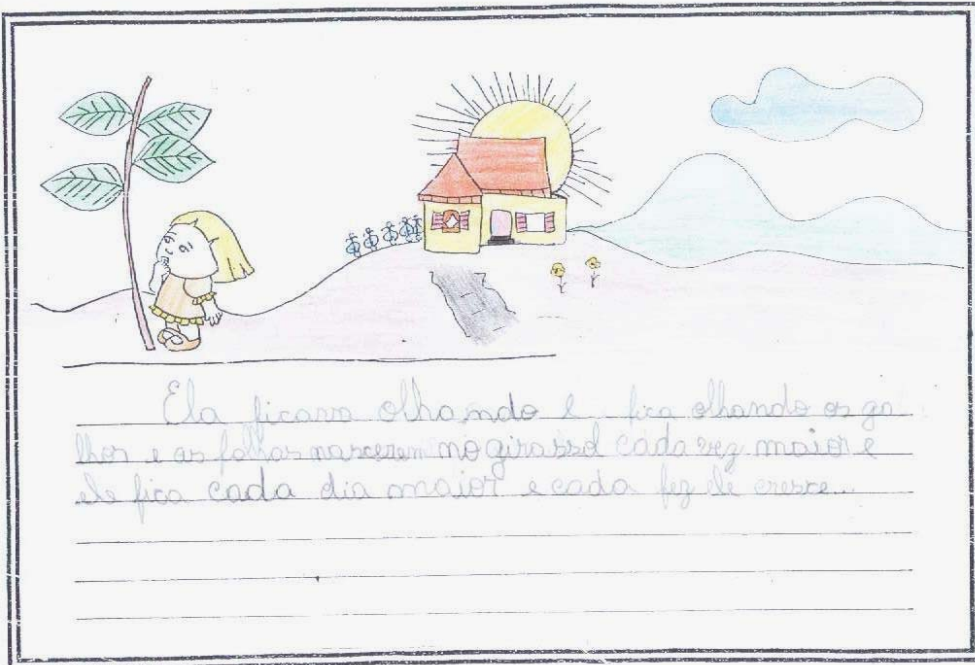 Ela ficava olhando e fica olhando os ga
lhos e as folhas nascerem no girassol cada vez maior e
ele fica cada dia maior e cada fez ele cresce...